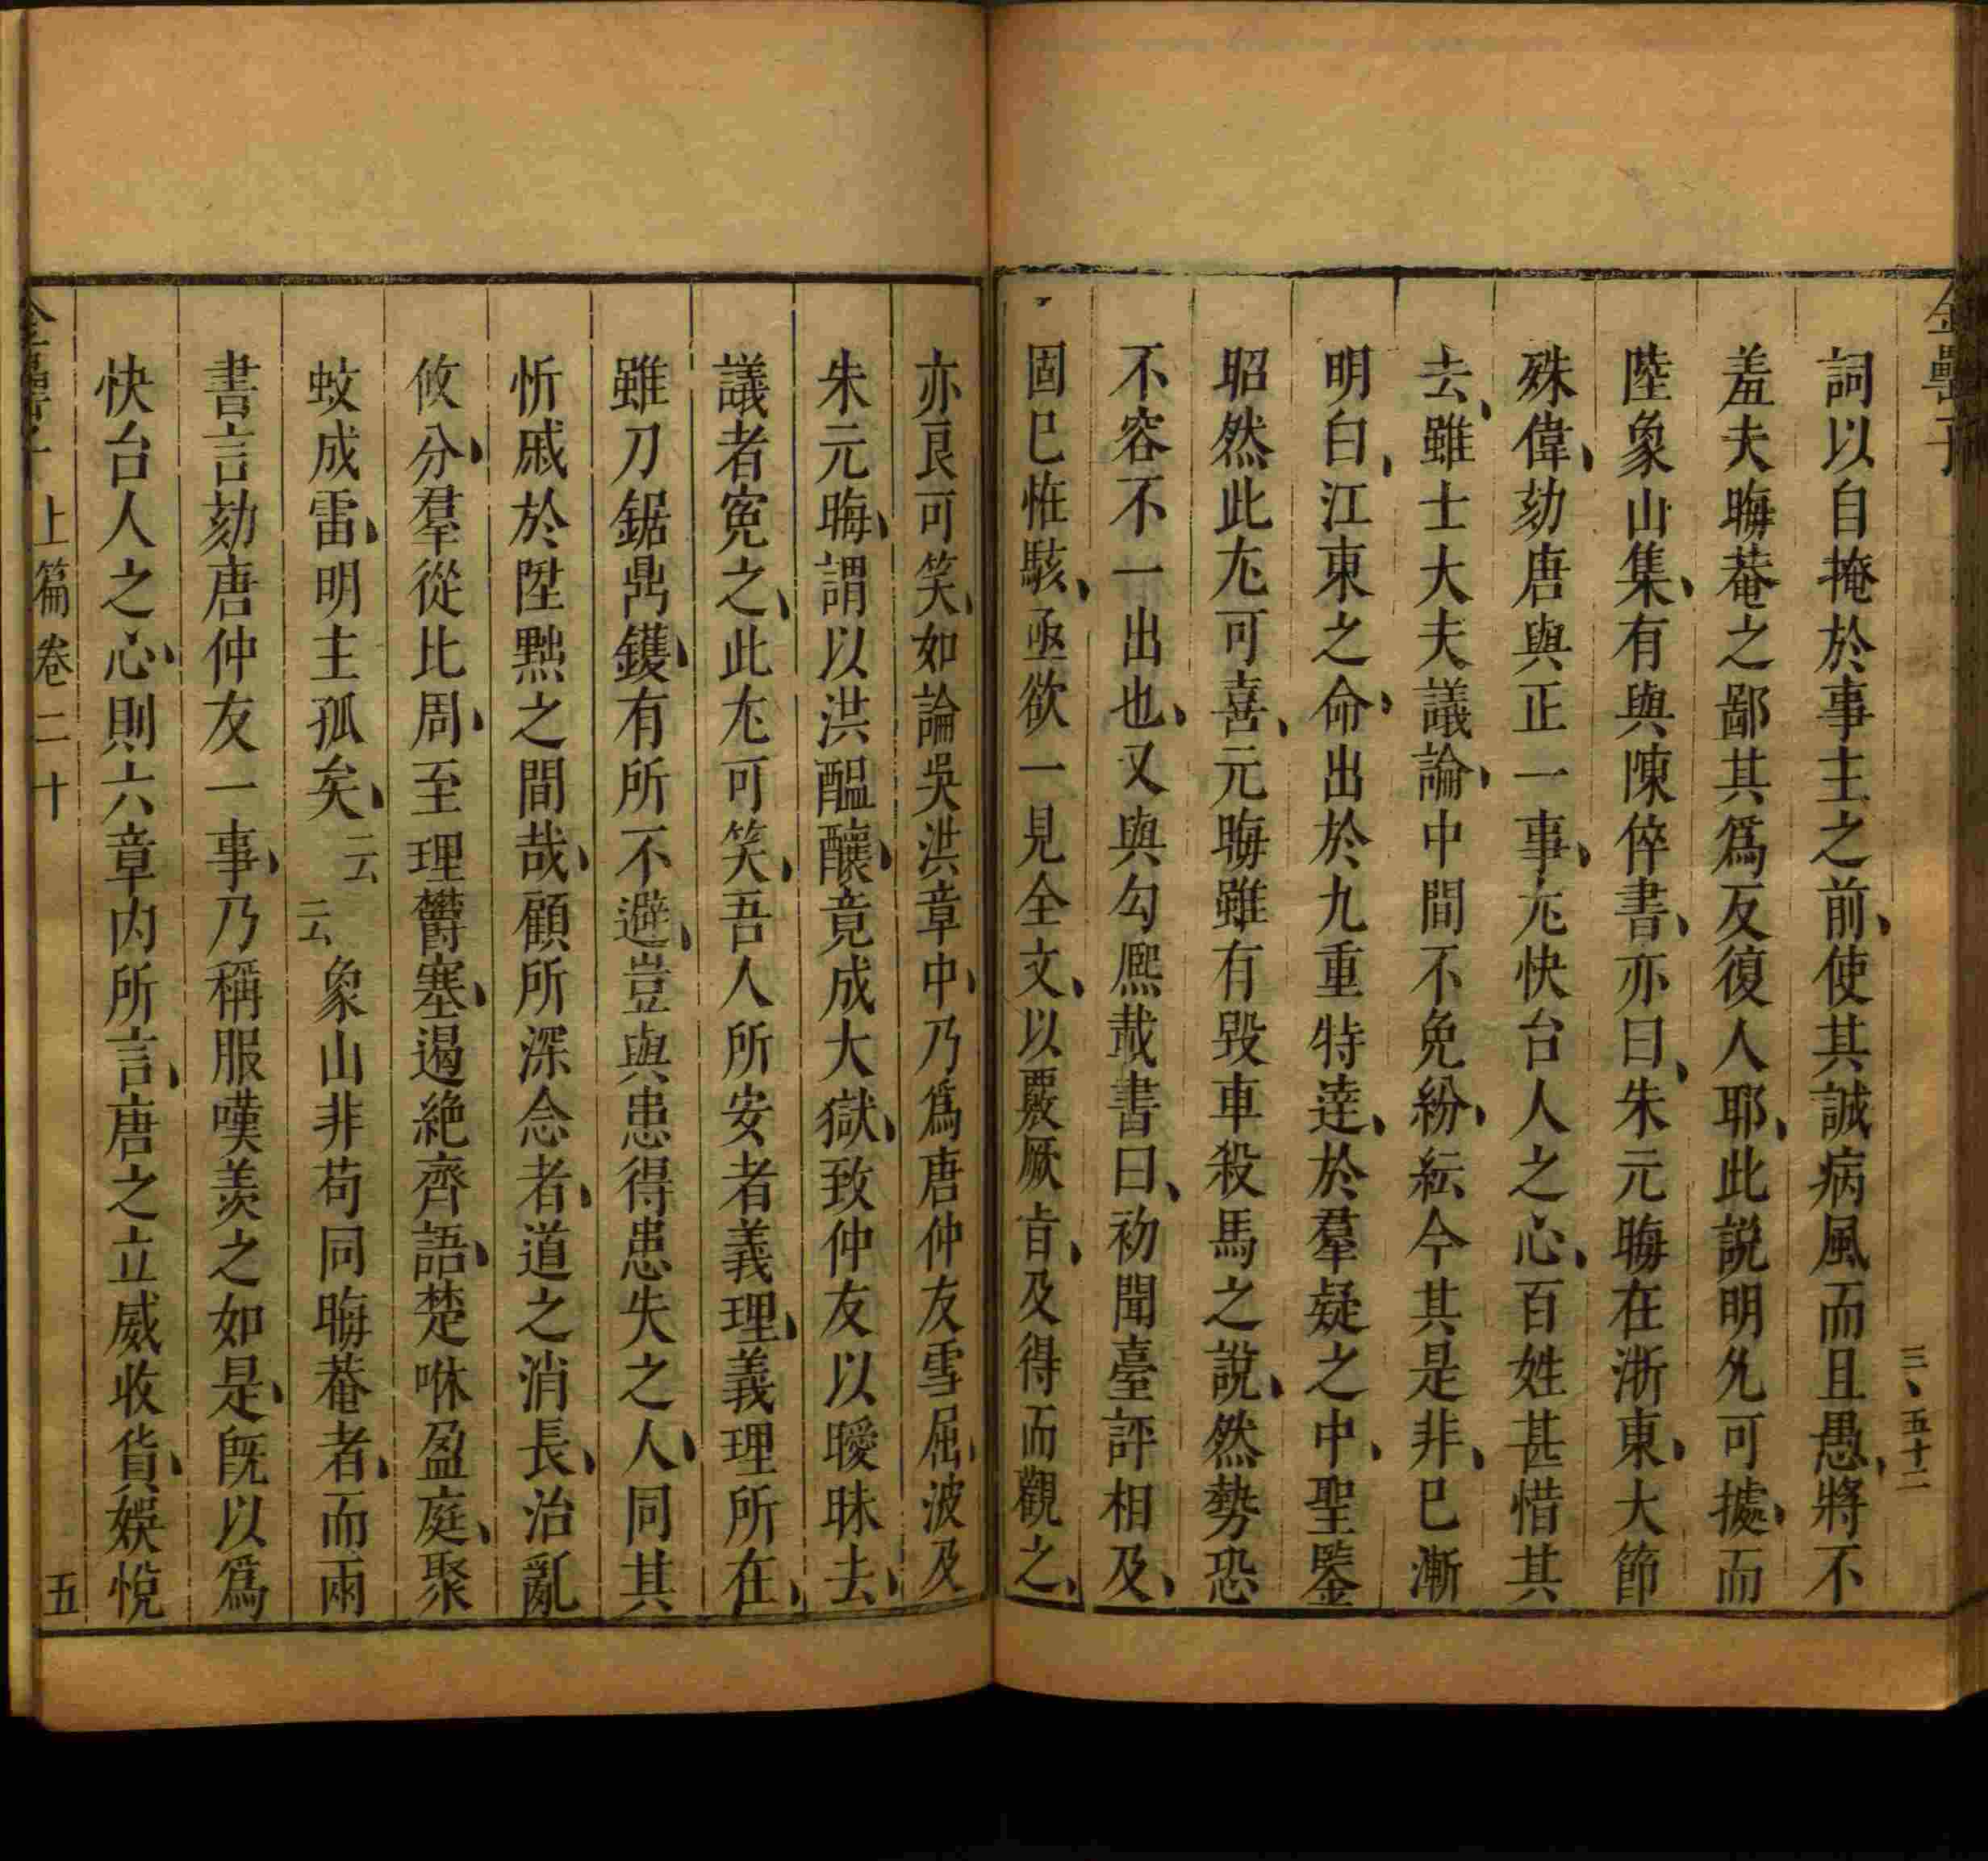 金罍子
三、五十二
詞以自掩於事主之前、使其誠病風而且愚、將不
羞夫晦菴之鄙其爲反復人耶、此說明允可據、而
陸象山集、有與陳倅書、亦曰、朱元晦在浙東、大節
殊偉、劾唐與正一事、尤快台人之心、百姓甚惜其
去、雖士大夫議論、中間不免紛、紜今其是非、已漸
明白、江東之命、出於九重特達、於羣疑之中、聖鑒
昭然此尤可喜、元晦雖有毀車殺馬之說、然勢恐
不容不一出也、又與勾熙載書曰、初聞臺評相及、
固已恠駭、亟欲一見全文、以覈厥㫖、及得而觀之、
亦良可笑、如論吳洪章中、乃爲唐仲友雪屈、波及
朱元晦、謂以洪醖釀、竟成大獄、致仲友以曖昧去、
議者寃之、此尤可笑、吾人所安者義理、義理所在、
雖刀鋸鼎鑊、有所不避、豈與患得患失之人、同其
忻戚於陞黜之間哉、顧所深念者、道之消長、治亂
攸分、羣從比周、至理欝塞、遏絶齊語、楚咻盈庭、聚
蚊成雷、明主孤矣、云云象山非苟同晦菴者、而兩
書言劾唐仲友一事、乃稱服嘆羨之如是、旣以爲
快台人之心、則六章内所言、唐之立威收貨、娛悅
上篇卷二十
五